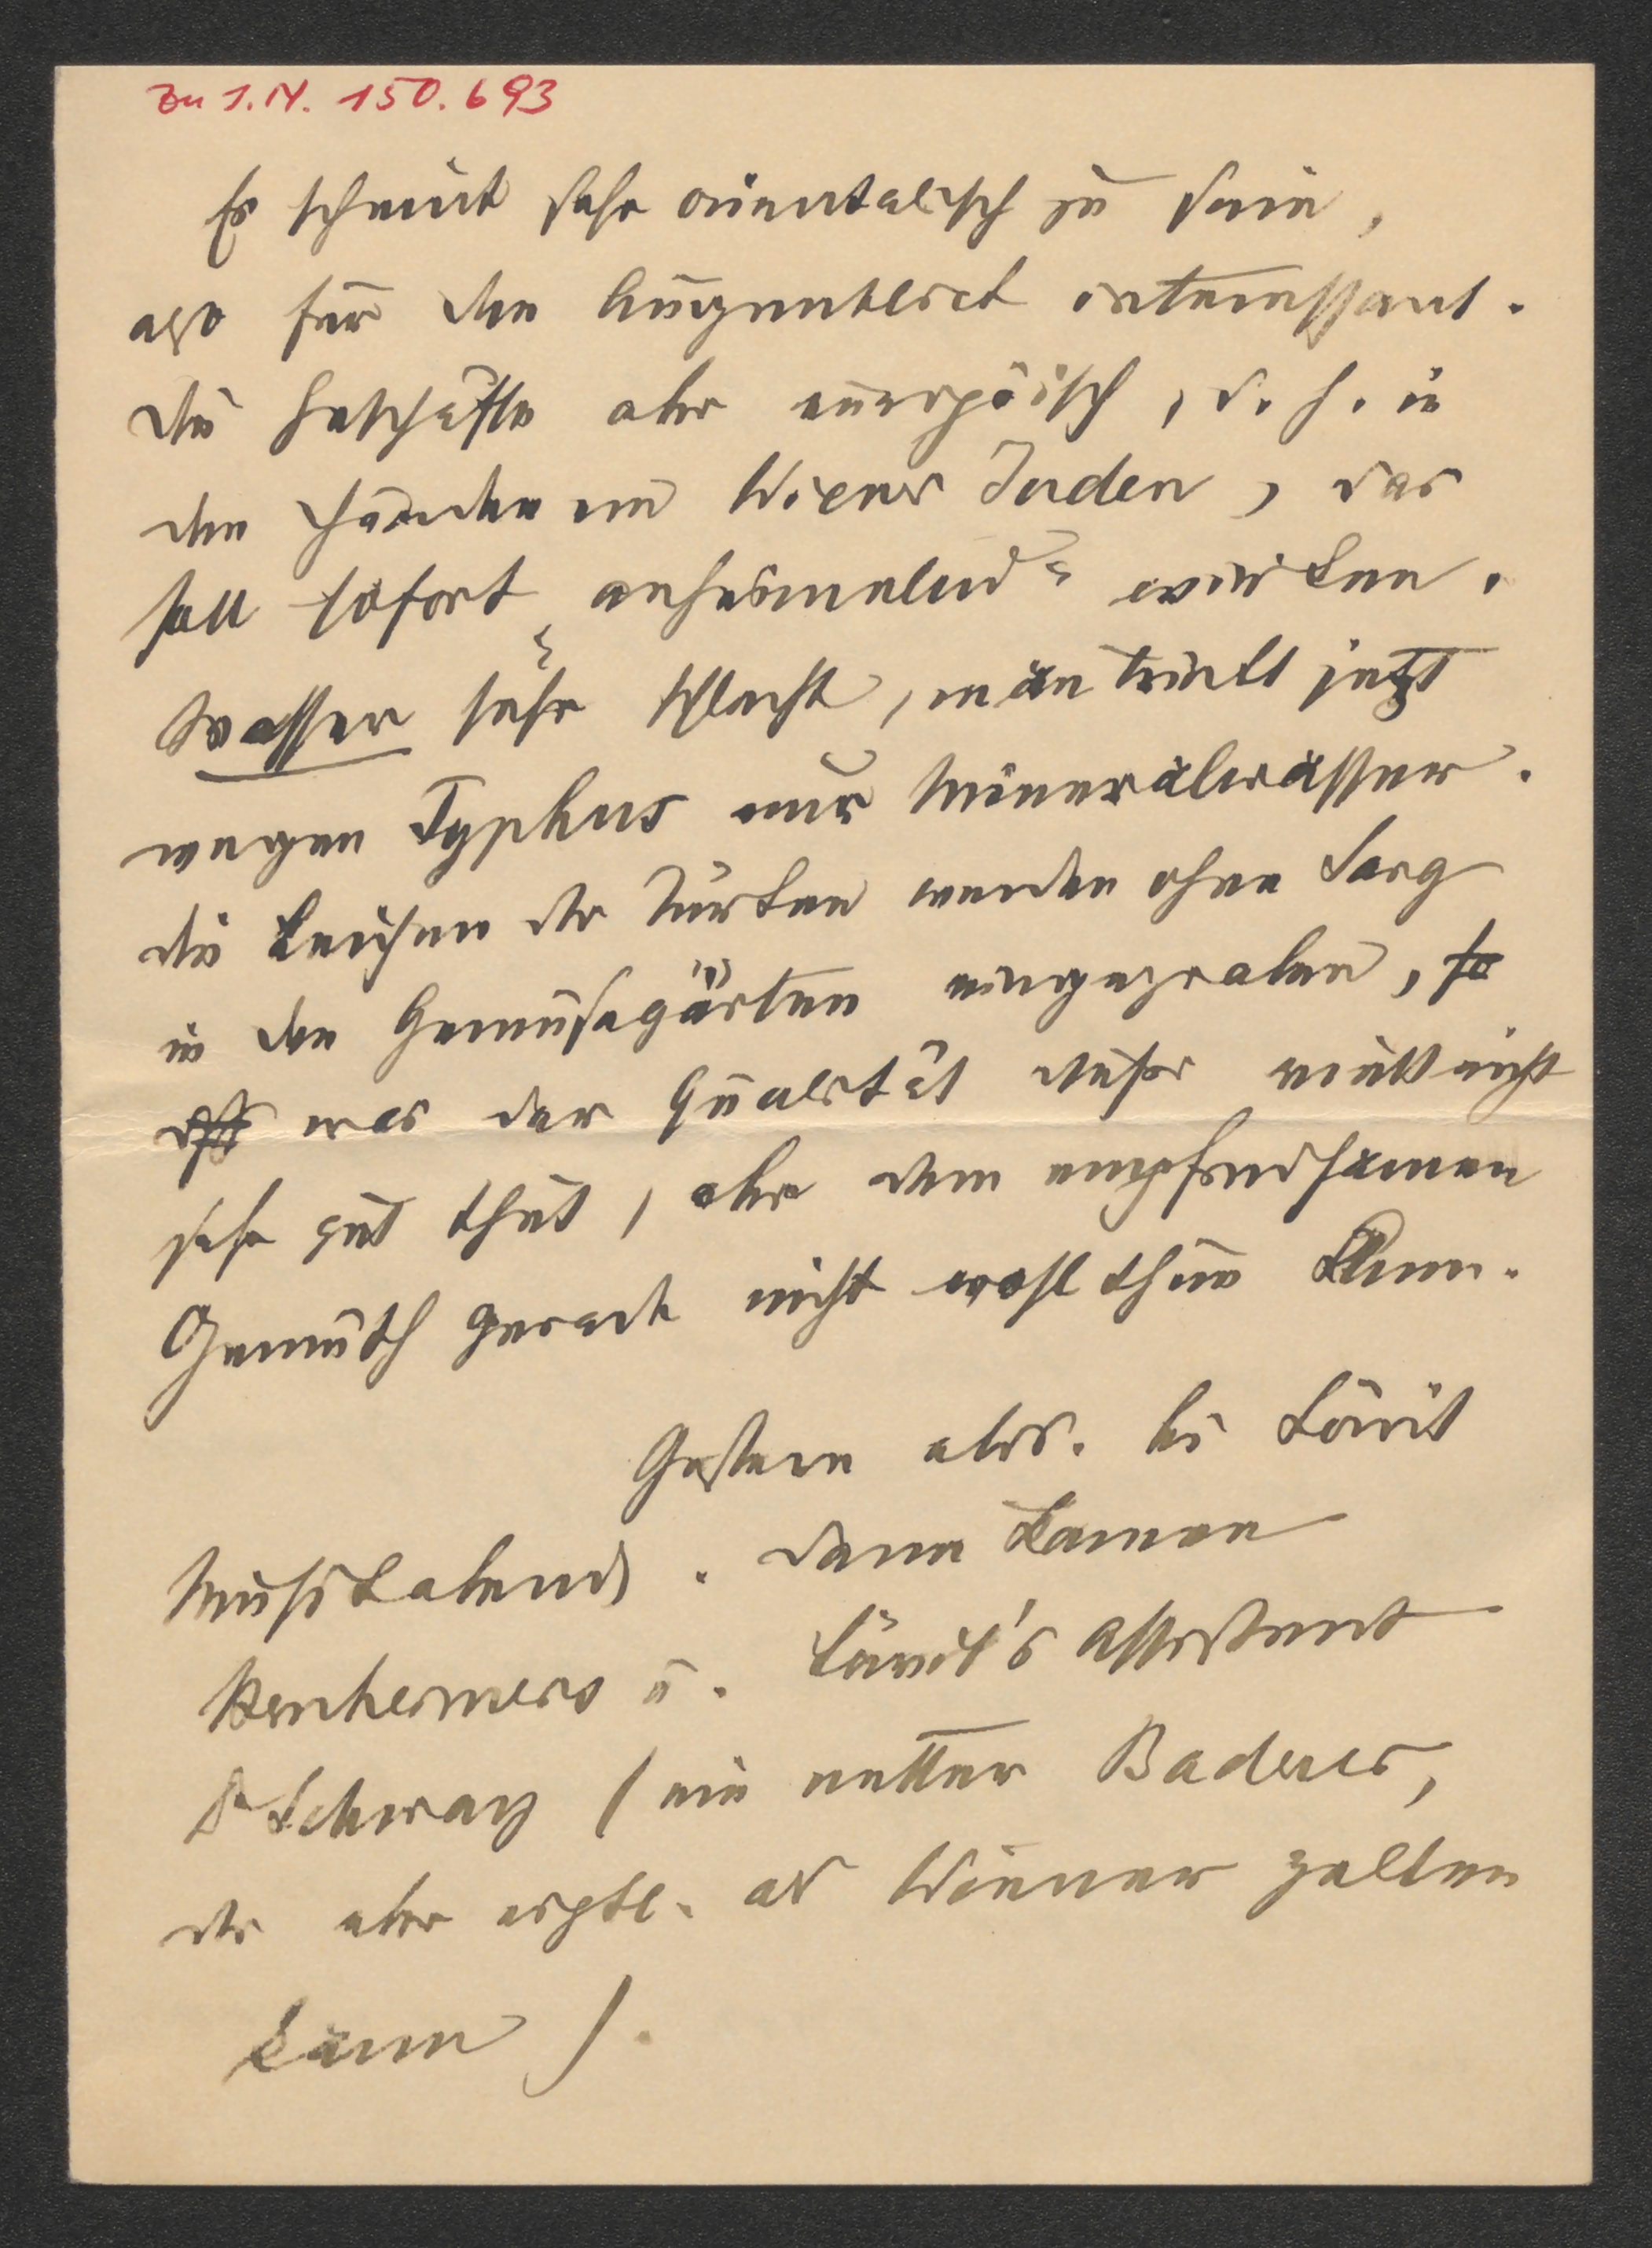 Zu I.N. 150.693
Es scheint sehr orientalisch zu sein,
also für den Augenblick interessant.
Die Geschäfte aber europäisch, d. h. in
den Händen von Wiener Juden, das
soll sofort „anheimelnd“ wirken.
Wasser sehr schlecht, man trinkt jetzt
wegen Typhus nur Mineralwasser.
die Leichen der Türken werden ohne Sarg
in den Gemüsegärten eingegraben, so
was der Qualität dieser vielleicht
sehr gut thut, aber dem empfindsamen
Gemüth gerade nicht wohl thun kann.
Gestern abds. bei Löwit
Musikabend. Dann kamen
u. Löwit's Assistent
Dr Schwarz (ein netter Badener,
der aber als Wiener gelten
kann).